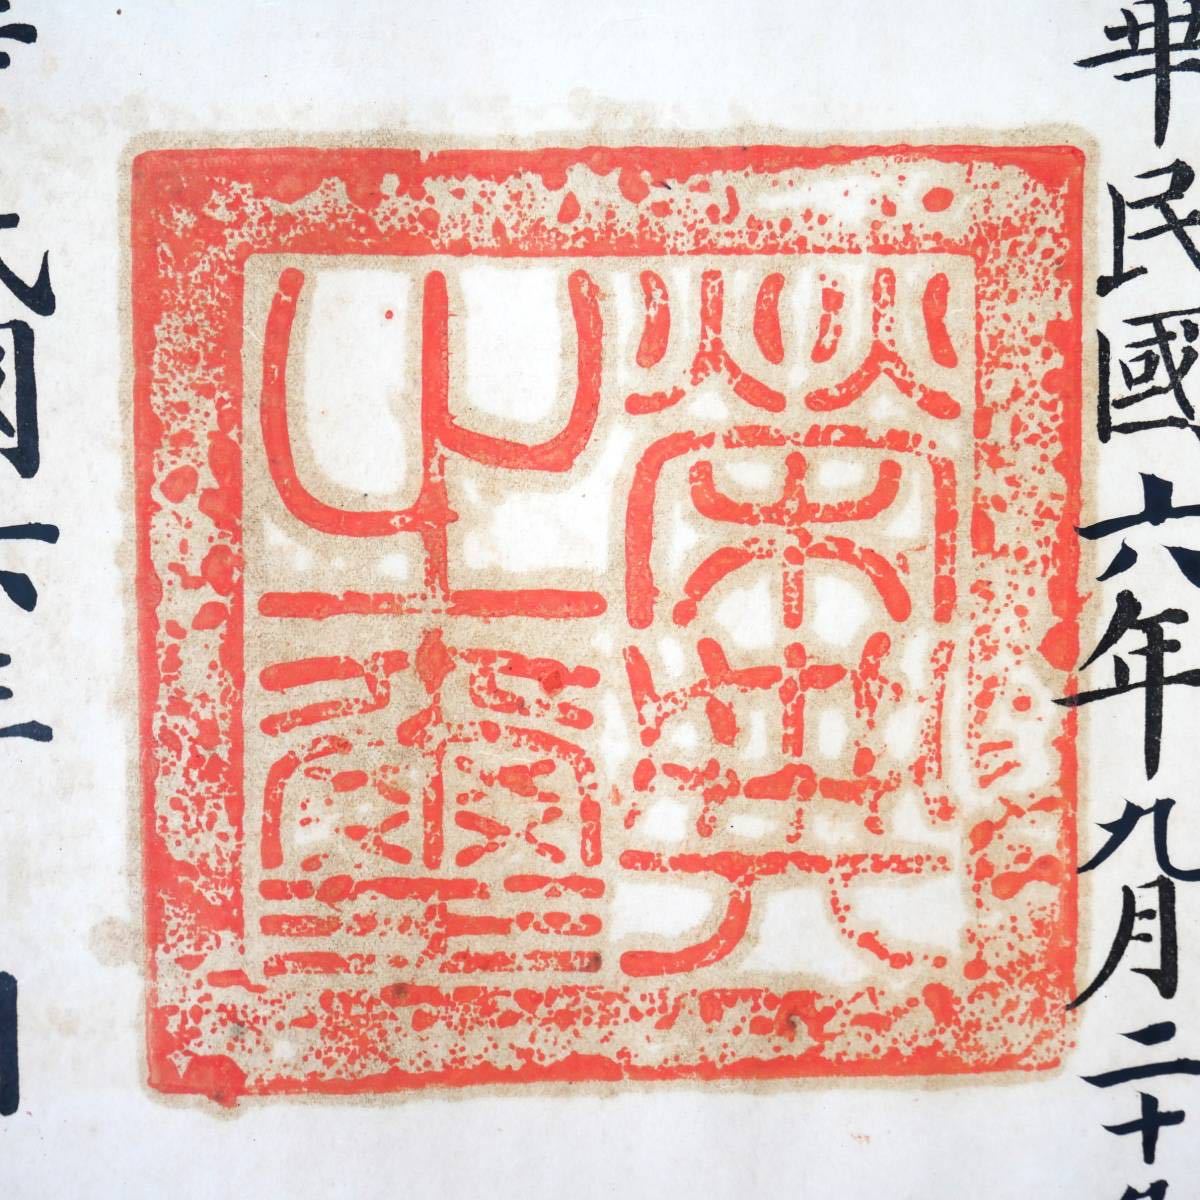 華民國六年九月二十
榮典之璽
民國六年